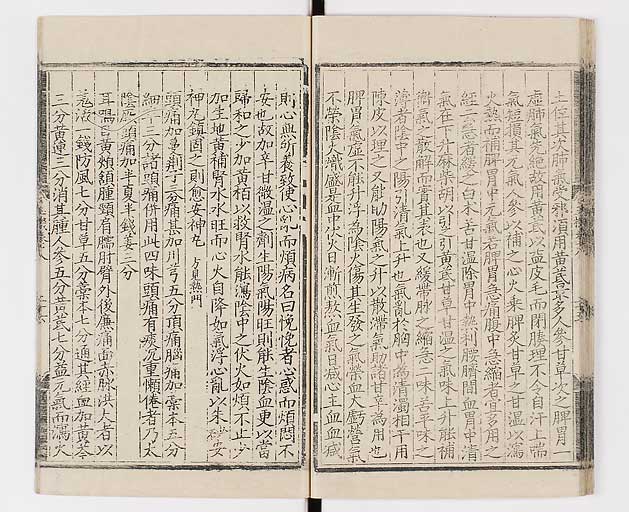 土位其次肺氣受邪須用黃芪最多人參甘草次之脾胃一
虛肺氣先絶故用黃芪以益皮毛而閉腠理不令自汗上喘
氣短損其元氣人參以補之心火乘脾炙甘草之甘溫以瀉
火熱而補脾胃中元氣若脾胃急痛腹中急縮者宜多用之
經云急者緩之白朮苦甘溫除胃中熱利腰臍間血胃中清
氣在下升麻柴胡以引之引黃芪甘草甘溫之氣味上升能補
衛氣之散解而實其表也又緩帶脉之縮急二味苦平味之
薄者陰中之陽引清氣上升也氣亂於胸中爲清濁相干用
陳皮以理之又能助陽氣之升以散滯氣助諸甘辛爲用也
脾胃氣虛不能升浮爲陰火傷其生發之氣榮血大虧營氣
不榮陰火熾盛是血中伏火日漸煎熬血氣日減心主血血減
則心無所養致使心亂而煩病名曰悗悗者心惑而煩悶不
安也故加辛甘微溫之劑生陽氣陽旺則能生陰血更以當
歸和之少加黃栢以救腎水能瀉陰中之伏火如煩不止少
加生地黃補腎水水旺而心火自降如氣浮心亂以朱砂安
神丸鎭固之則愈安神丸 方見熱門
頭痛加蔓荊子三分痛甚加川芎五分頂痛腦痛加藁本五分
細辛三分諸頭痛併用此四味頭痛有痰沉重懶倦者乃太
陰厥頭痛加半夏半錢姜三分
耳鳴目黃頰頷腫頸肩臑肘臂外後廉痛面赤脉洪大者以
羌活一錢防風七分甘草五分藁本七分通其經血加黃芩
三分黃連三分消其腫人參五分黃芪七分益元氣而瀉火